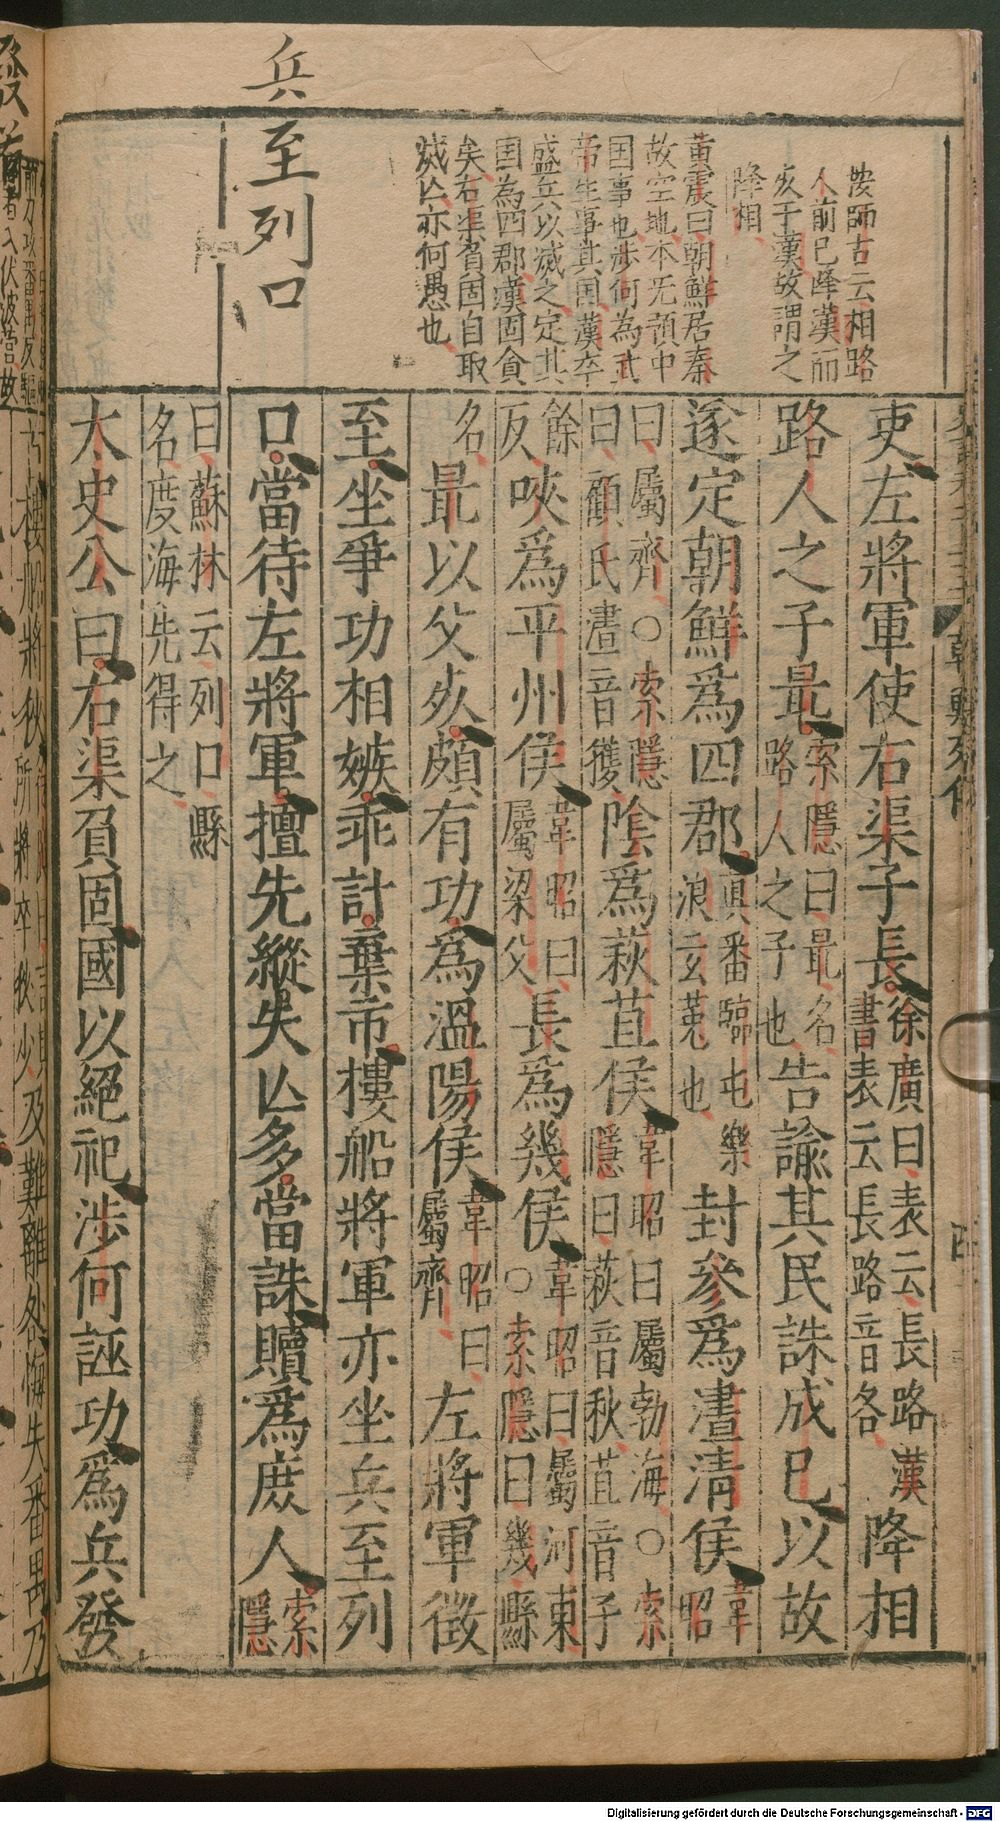 兵至列口
按師古云相路
人前已降漢而
友于漢故謂之
降相
黃震曰朝鮮居秦
故空地本无預中
国事也涉何為武
帝生事其国漢卒
盛兵以滅之定其
国為四郡漢固貪
矣右渠負固自取
滅亾亦何愚也
吏左將軍使右渠子長徐廣曰表云長路漢書表云長路音各降相
路人之子最索隱曰最名路人之子也告諭其民誅成已以故
遂定朝鮮爲四郡真番臨屯樂浪玄菟也封參爲澅清侯韋昭
曰屬齊○索隱曰顧氏澅音獲陰爲萩苴侯韋昭曰屬勃海○索隱曰萩音秋苴音子
餘反唊爲平州侯韋昭曰屬梁父長爲幾侯韋昭曰屬河東○索隱曰幾縣
名最以父死頗有功爲溫陽侯韋昭曰屬齊左將軍徵
至坐爭功相嫉乖計棄市樓船將軍亦坐兵至列
口當待左將軍擅先縱失亾多當誅贖爲庶人索隱
曰蘇林云列口縣名度海先得之
太史公曰右渠負固國以絕祀涉何誣功爲兵發
Digitalisierung gefördert durch die Deutsche Forschungsgemeinschaft - DFG